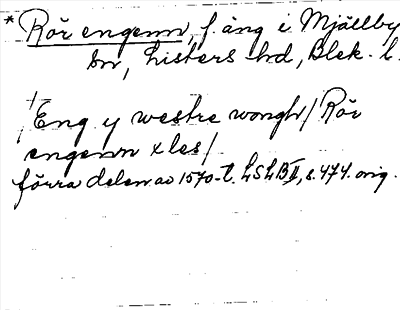 * Rör engenn, f. äng i Mjällby
sn, Listers hd, Blek. l.
/Eng y westre wongh/ Rör
engenn x les/
förra delen av 1570-t. LSLBII, s. 474. orig.